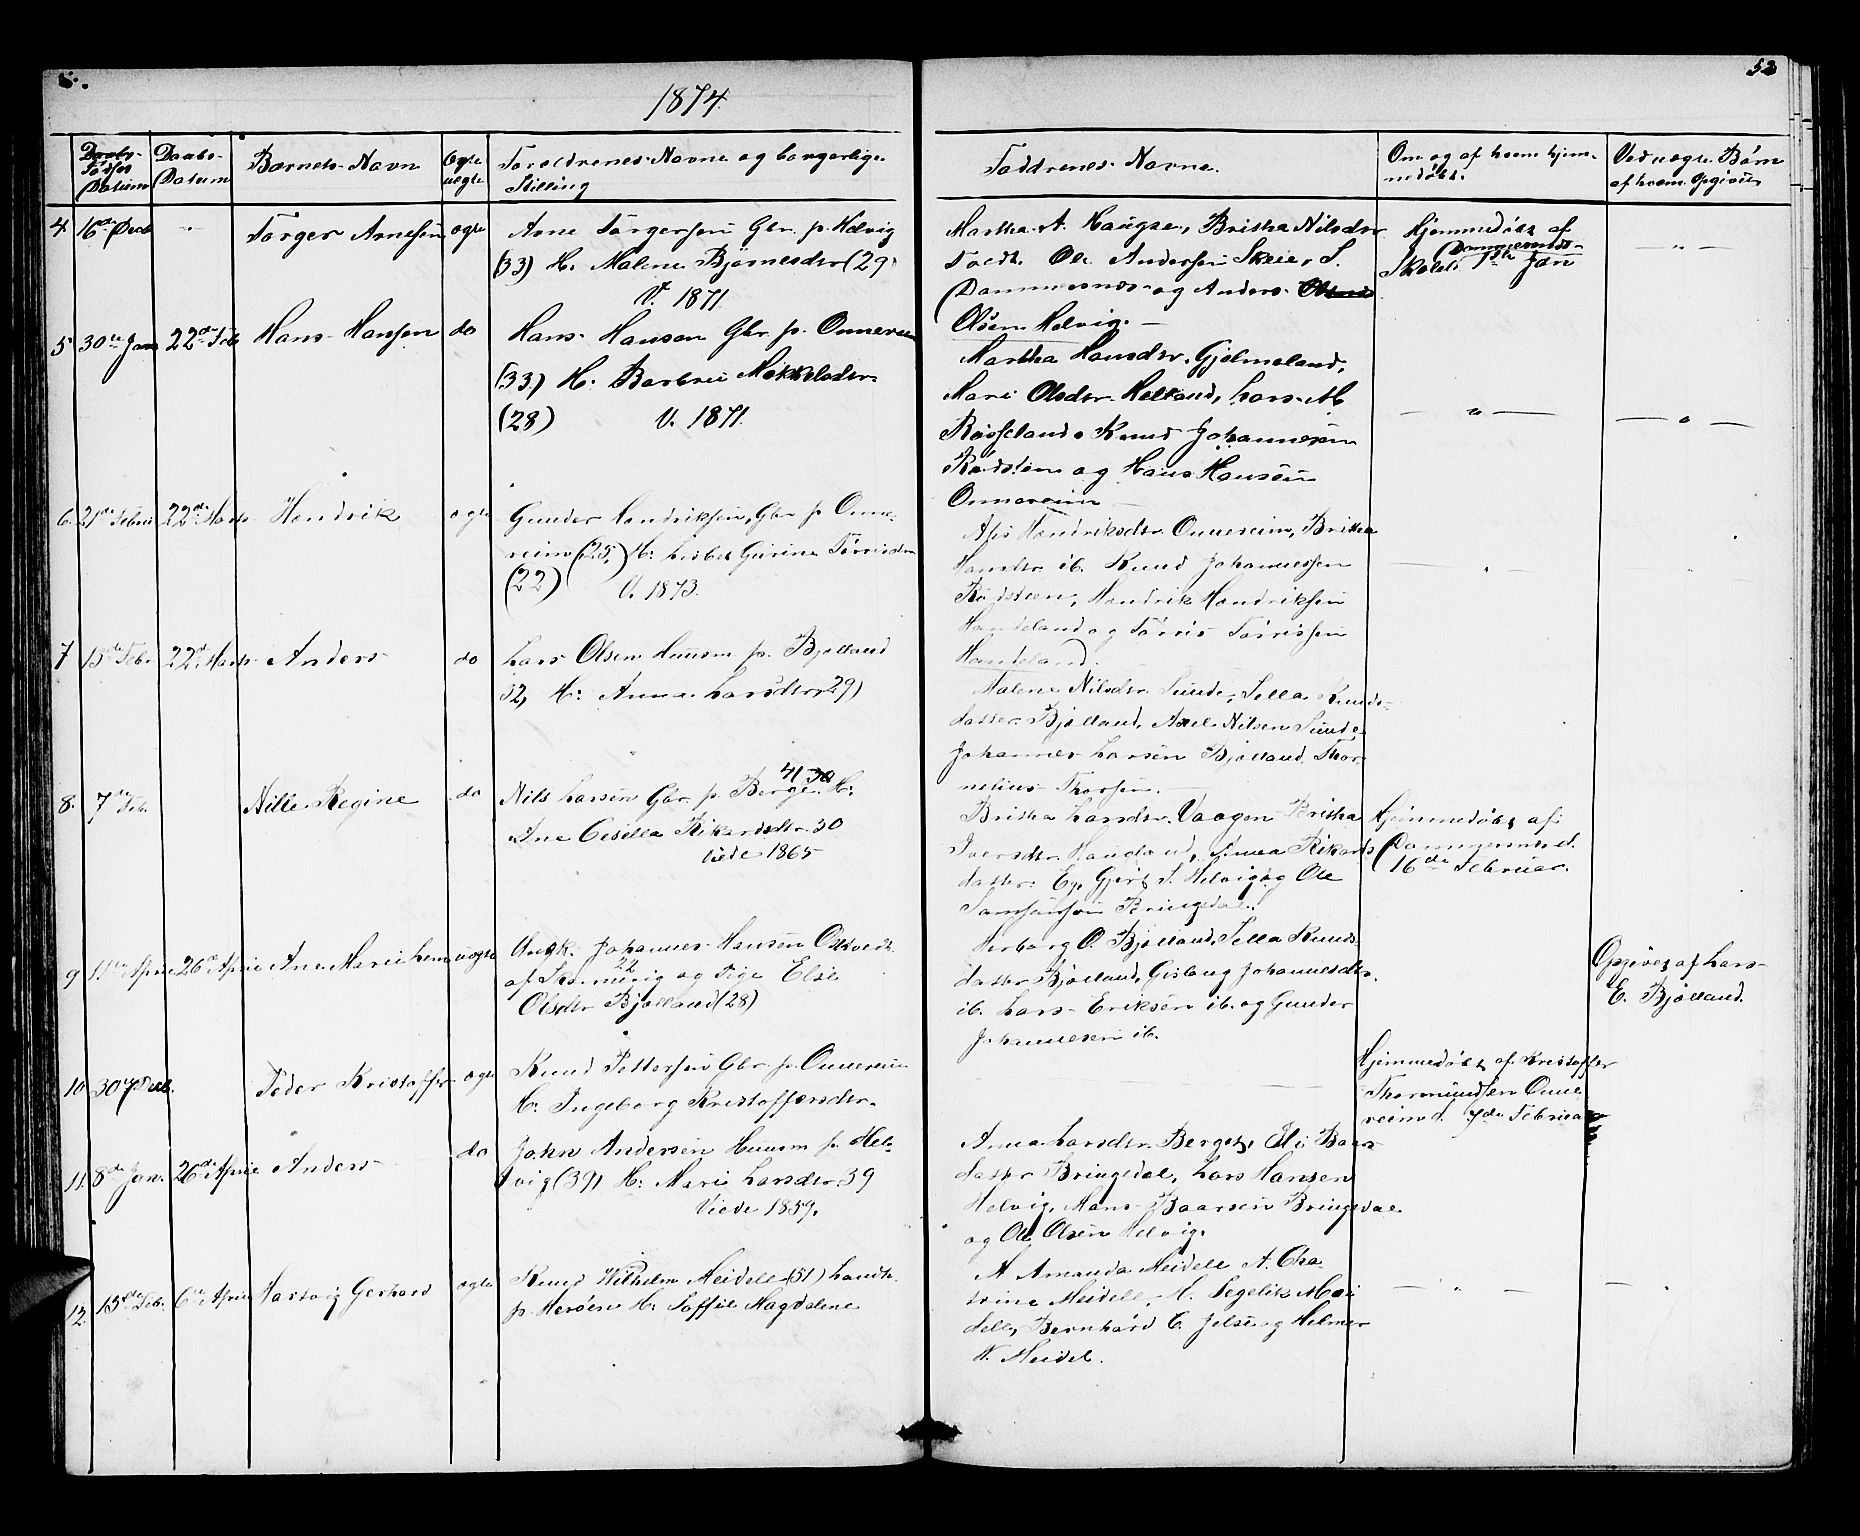 1874.
53
Daabs-
Fødsels
Datum
Daabs-
Datum
Barnets Navn
Ægte
uægte
Forældrenes Navne og borgerlige
Stilling
Faddrenes Navne.
Om og af hvem hjem-
medøbt.
Ved uægte Børn
af hvem Opgivet
4 16de Decb Torger Arnesen ægte
Arne Torgersen Gbr. p. Helvig
(33) H: Malene Bjørnesdtr (29)
V. 1871
Martha A. Haugse, Britha Nilsdtr
Tvedt. Ole Andersen Skeie, S.
Dammesnes og Anders
Olsen Helvig. —
Hjemmedøbt af
Dammesnes
Skolel. 1ste Jan
5 30te Jan 22de Feb Hans Hansen do
Hans Hansen Gbr p. Onnereim
(33) H: Barbru Mekkelsdtr.
(28) V. 1871.
Martha Hansdtr. Gjelmeland,
Mari Olsdtr. Helland, Lars M
Røsseland, Knud Johannesen
Rødsteen og Hans Hansen
Onnereim
6. 21de Febru 22de Marts Hendrik ægte
Gunder Hendriksen, Gbr p Onne-
reim (25,) H: Lisbet Gurine Tørrisdtr
(22) V. 1873.
Hendriksdtr. Onnereim, Britha
Hansdtr ib. Knud Johannessen
Rødsteen, Hendrik Hendriksen
Handeland og Tørris Tørrissen
Handeland.
7 13de Febr. 22de Marts Anders do
Lars Olsen Huusm p. Bjølland
32, H: Anna Larsdtr 29)
Malene Nilsdtr. Sunde, Sella Knuds-
datter Bjølland, Axel Nilsen Sunde
Johannes Larsen Bjølland, Thor-
nelius Thorsen.
8. 7de Feb. Nille Regine do
41 30
Nils Larsen Gbr. p. Berge. H:
Ane Cesilia Rikardsdtr. 30
Viede 1865
Britha Larsdtr. Vaagen Britha
Iversdtr. Haugland, Anna Rikards
datter Eg. Gjert S. Helvig og Ole
Samsonsen Bringedal.
Hjemmedøbt af
Dammesnes d.
16de Februar.
9 11te April 26de April Ane Marie uægte
Ungk. Johannes Hansen Østvedt
22
af og Pige Else
Olsdtr Bjølland (28)
Herborg O. Bjølland, Sella Knuds-
datter Bjølland, Gislaug Johannesdtr.
ib. Lars Eriksen ib. og Gunder
Johannesen ib.
Opgivet af Lars
E. Bjølland.
10 30te Decb. Peder Kristoffer ægte
Knud Pettersen Gbr. p. Onnereim
H: Ingeborg Kristoffersdtr.
Hjemmedøbt af Kristoffer
Thormundsen Onne
reim d. 7de Februar
11. 8de Jan. 26de April Anders do
John Andersen Huusm p. Hel-
vig (39) H: Mari Larsdtr. 39
Viede 1859.
Anna Larsdtr. Berge, Eli Baars-
datter Bringedal, Lars Hansen
Helvig, Hans Baarsen Bringedal
og Ole Olsen Helvig.
12. 15de Feb. 6te April Hartvig Gerhard ægte
Knud Wilhelm Meidell (51) Landh.
p. Herøen H: Soffie Magdalene
M Amanda Meidell A. Cha-
trine Meidell, H. Segelik Mei
dell, Bernhard C. Jelse og Helmer
N. Meidel.